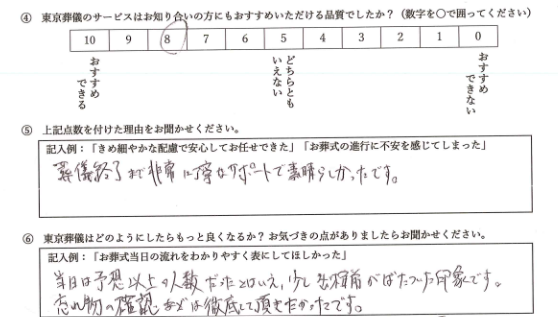 ④ 東京葬儀のサービスはお知り合いの方にもおすすめいただける品質でしたか？（数字を○で囲ってください）
10 9 8 7 6 5 4 3 2 1 0
おすすめできる
どちらともいえない
おすすめできない
⑤ 上記点数を付けた理由をお聞かせください。
記入例：「きめ細やかな配慮で安心してお任せできた」「お葬式の進行に不安を感じてしまった」
葬儀終了まで非常に丁寧なサポートで素晴らしかったです。
⑥ 東京葬儀はどのようにしたらもっと良くなるか？ お気づきの点がありましたらお聞かせください。
記入例：「お葬式当日の流れをわかりやすく表にしてほしかった」
当日は予想以上の人数だったとはいえ、少し出棺前がばたついた印象です。
忘れ物の確認などは徹底して頂きたかったです。